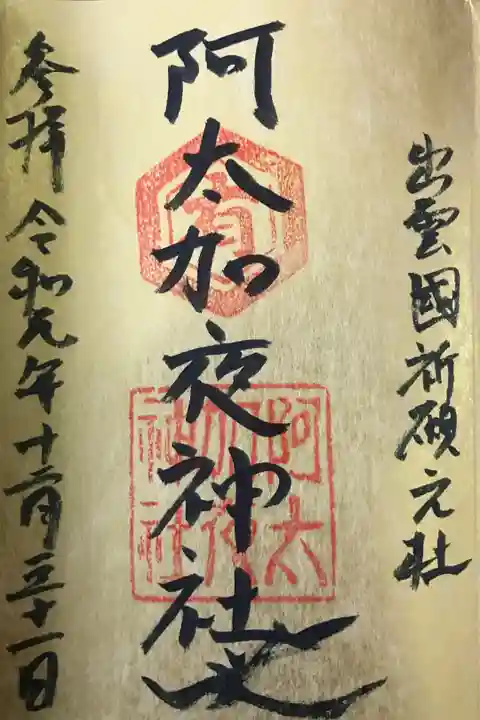 出雲國祈願元社
阿太加夜神社
有
阿太
加夜
神社
参拝 令和元年十二月三十一日